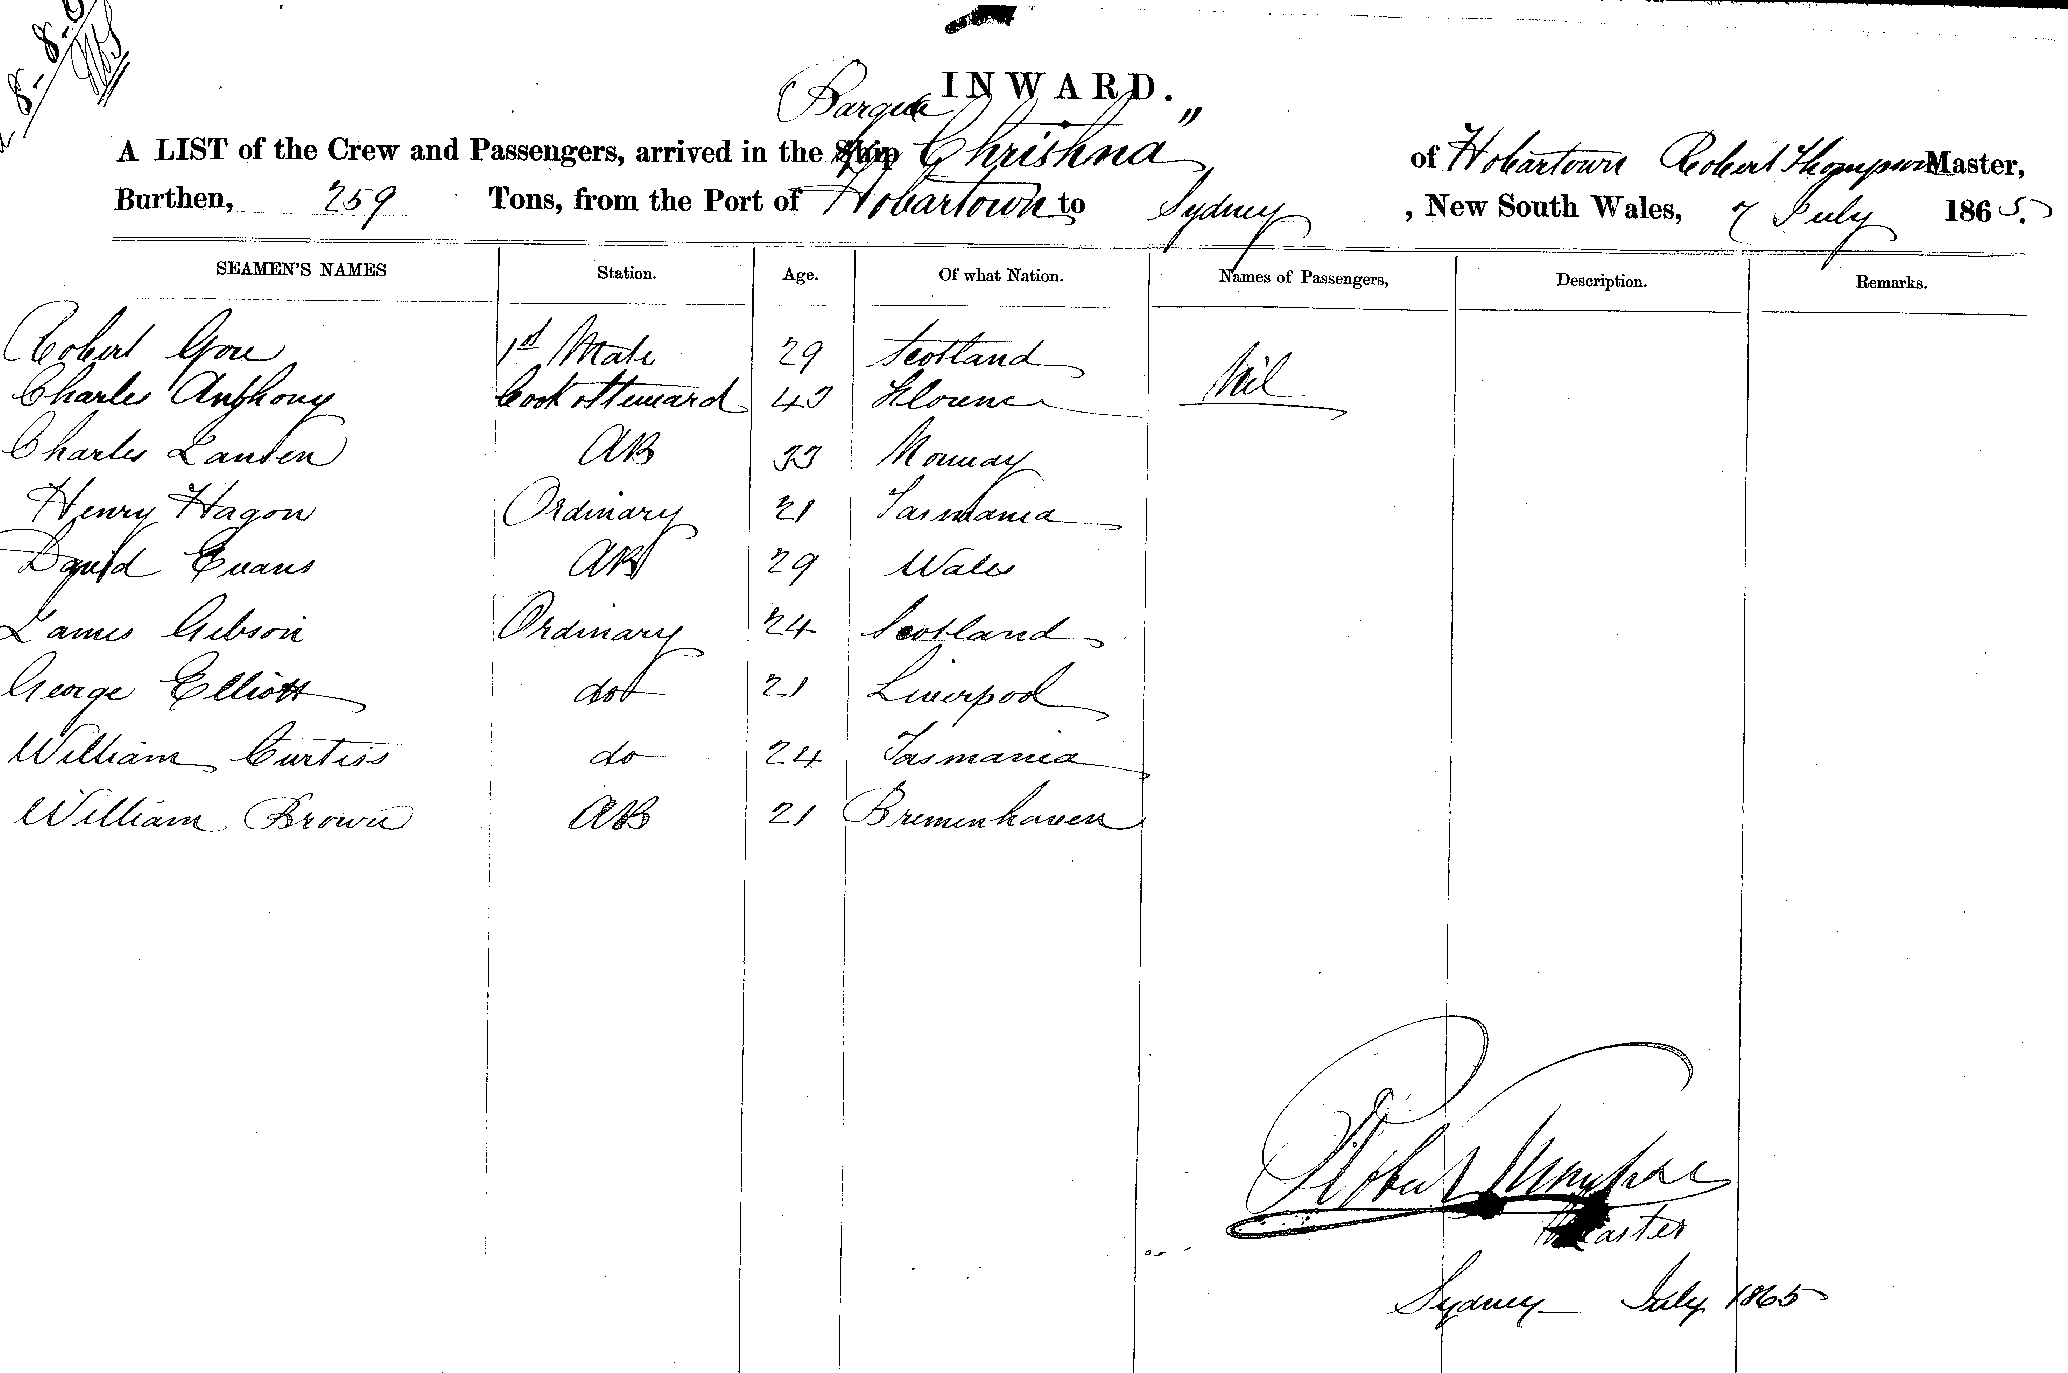 INWARD.
Barque
A LIST of the Crew and Passengers, arrived in the Ship Chrishna " of Hobartown Robert Thompson Master,
Burthen, 259 Tons, from the Port of Hobartown to Sydney , New South Wales, 7 July 1865.
SEAMEN'S NAMES Station. Age. Of what Nation. Names of Passengers, Description. Remarks.
Robert Gore 1st Mate 29 Scotland Nil
Charles Anthony Cook & Steward 43 Florence
Charles Lansen AB 33 Norway
Henry Hagon Ordinary 21 Tasmania
David Evans AB 29 Wales
James Gibson Ordinary 24 Scotland
George Elliott do 21 Liverpool
William Curtiss do 24 Tasmania
William Brown AB 21 Bremenhaven
Robert Thompson
Master
Sydney July 1865